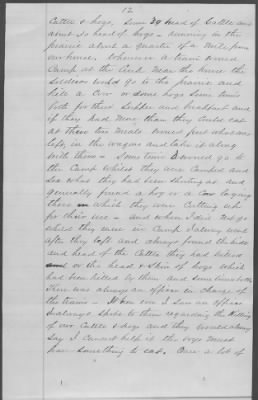 12
Cattle & hogs, some 39 head of Cattle and
about 50 head of hogs - running in the
prairie about a quarter of a mile from
our house. Whenever a train would
Camp at the Creek near the house the
Soldiers would go to the prairie and
kill a Cow or some hogs some times
both for their Supper and breakfast and
if they had more than they could eat
at these two meals would put what was
left, in the wagons and take it along
with them - Some times I would go to
the Camp whilst they were Camped and
see what they had been shooting at and
generally found a hog or a Cow laying
there which they were Cutting up
for their use - and when I did not go
whilst they were in Camp I always went
after they left and always found the hide
and head of the Cattle they had killed
or the head & skin of hogs which
had been killed by them and some times both
There was always an officer in charge of
the trains - When ever I saw an officer
I always spoke to them regarding the Killing
of our Cattle & hogs and they would always
say I cannot help it the boys must
have something to eat. Once a lot of